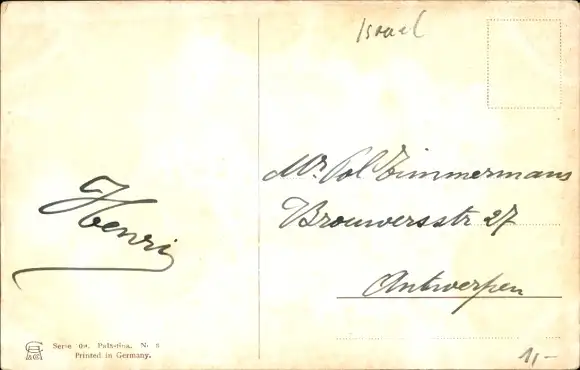 Israel
Mr. Pol Zimmermans
Brouwersstr 27
Antwerpen
Henri
Serie Palästina. N.
Printed in Germany.
1,-